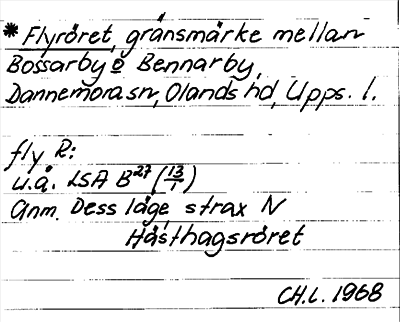 * Flyröret, gränsmärke mellan
Bossarby o Bennarby,
Dannemora sn, Olands hd, Upps. l.
fly R:
u.å. LSA B27 (13/1)
Anm. Dess läge strax N
Hästhagsröret
CH.L. 1968